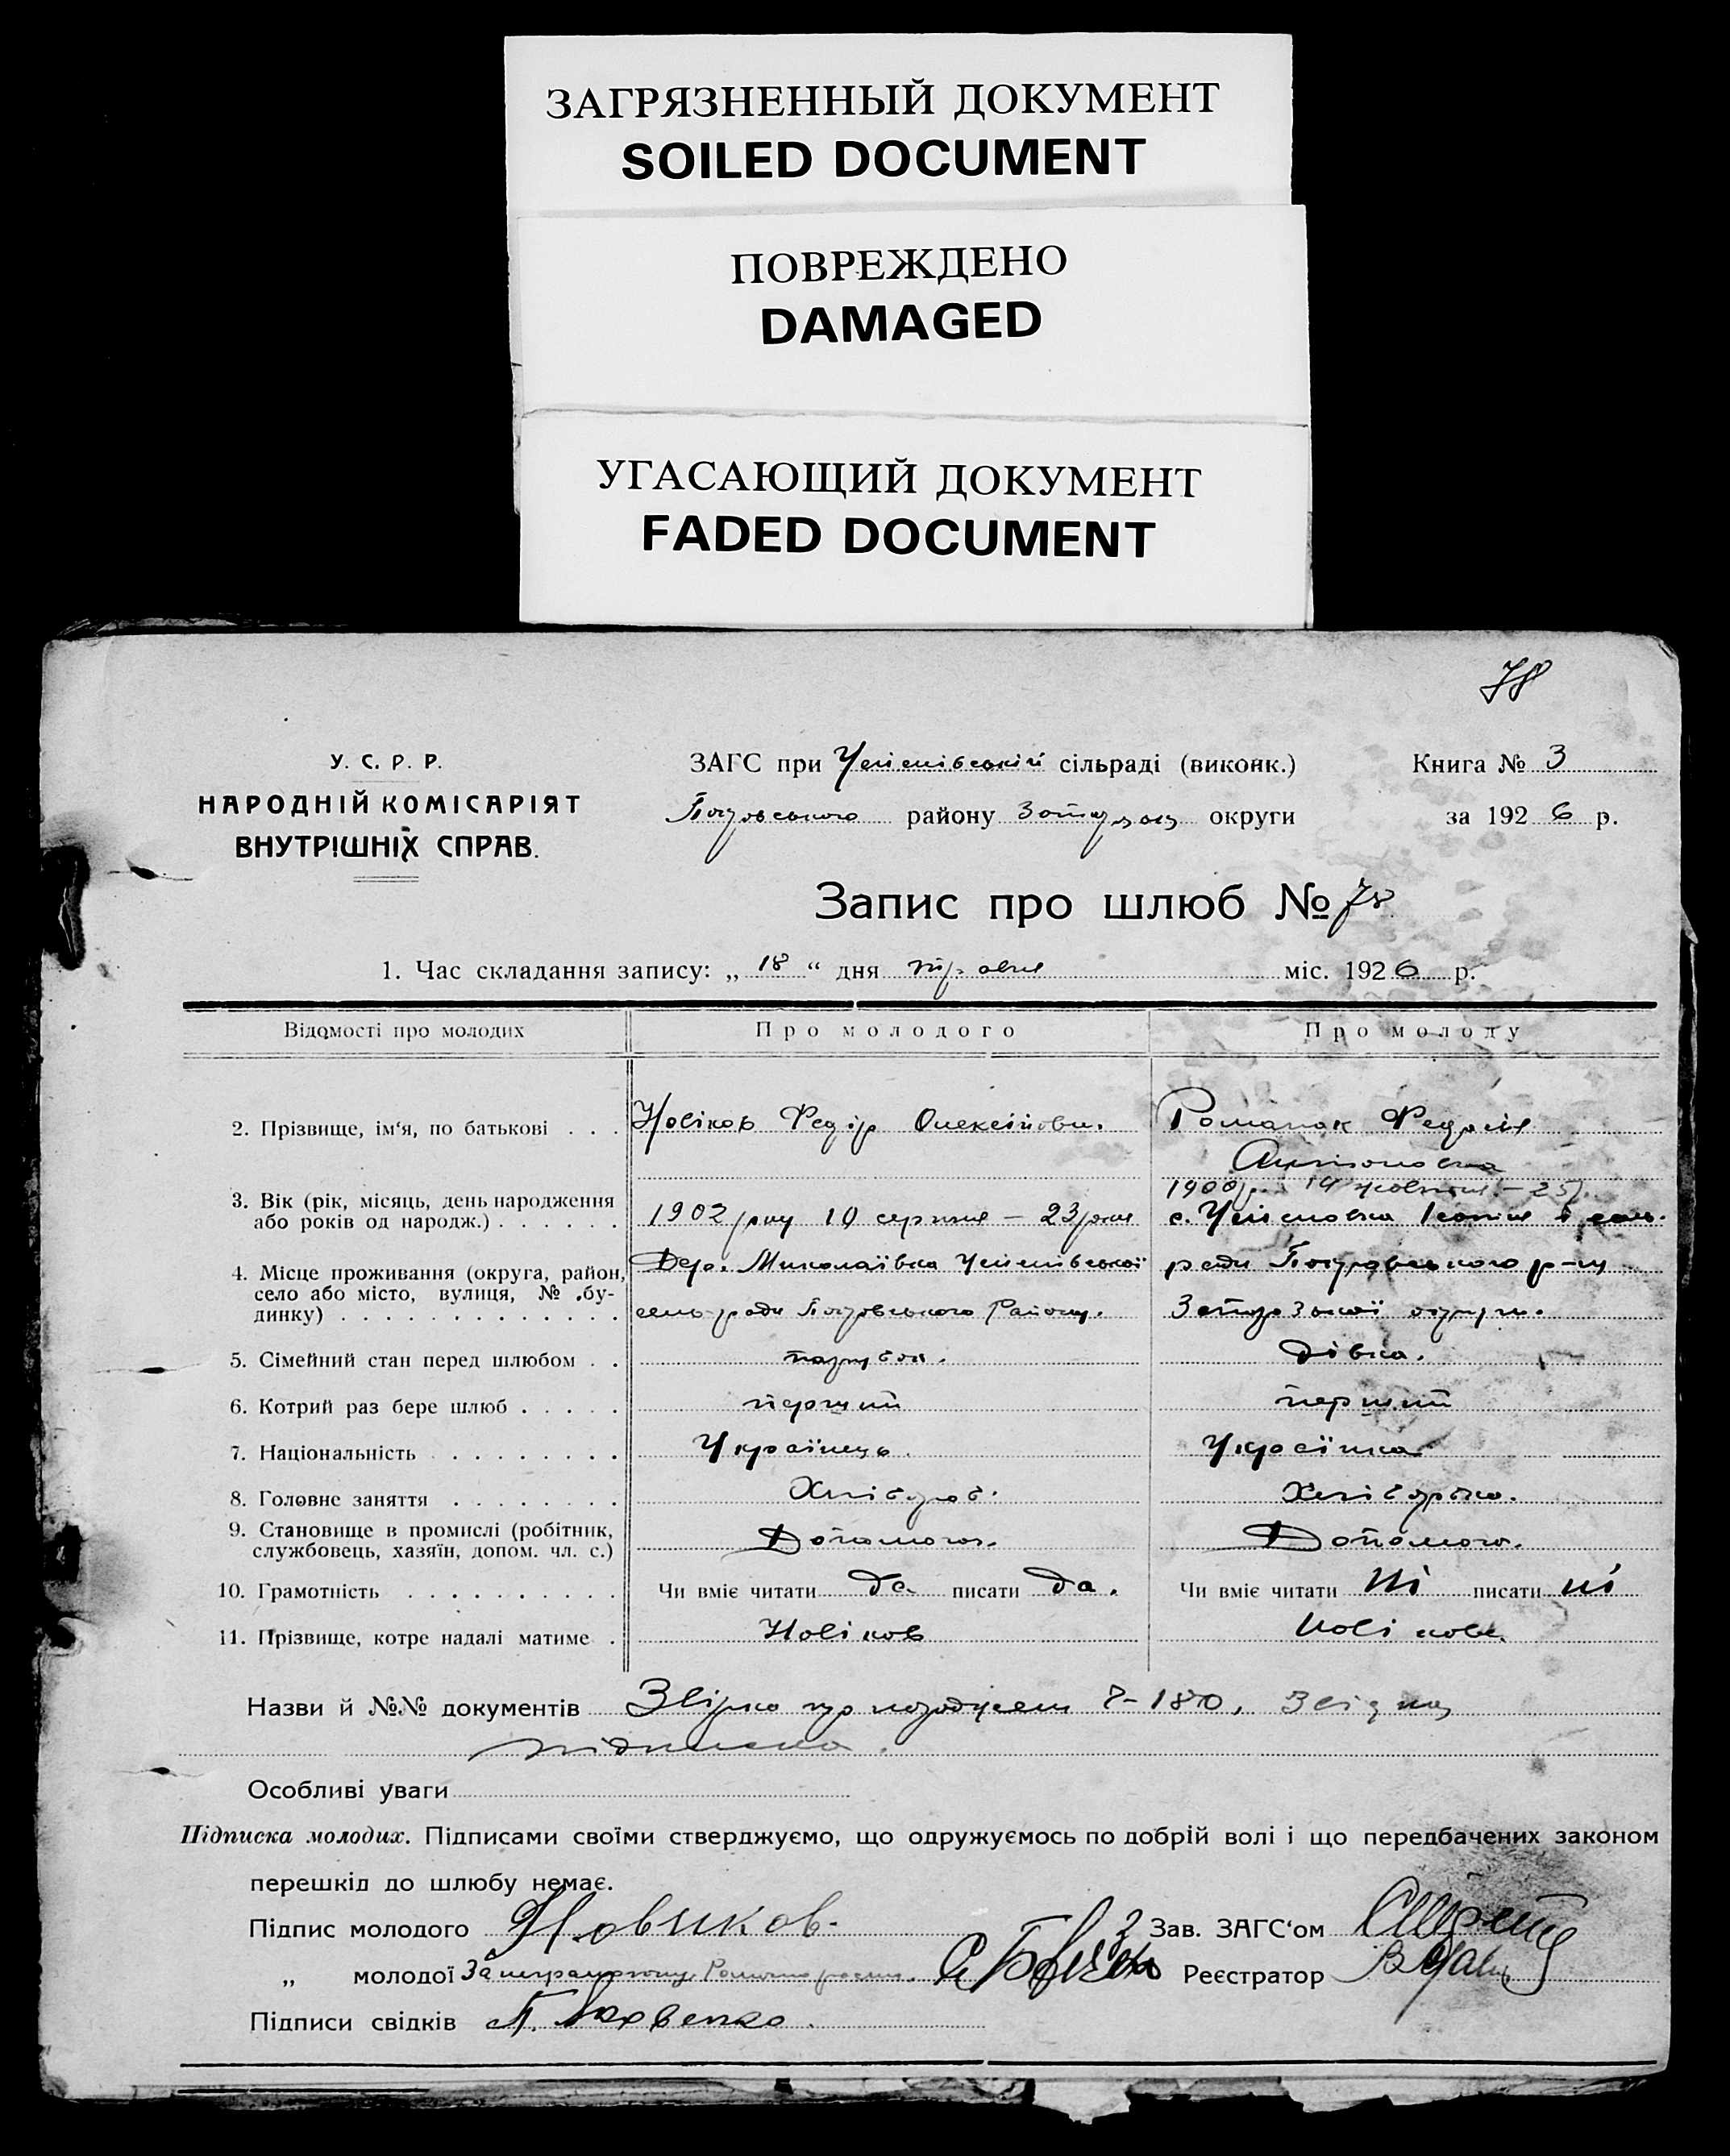 ЗАГРЯЗНЕННЫЙ ДОКУМЕНТ
SOILED DOCUMENT
ПОВРЕЖДЕНО
DAMAGED
УГАСАЮЩИЙ ДОКУМЕНТ
FADED DOCUMENT
78
У. С. Р. Р.
НАРОДНІЙ КОМІСАРІЯТ
ВНУТРІШНІХ СПРАВ.
ЗАГС при Успенівській сільраді (виконк.)
Покровського району округи
Книга № 3
за 1926 р.
Запис про шлюб № 78
1. Час складання запису: „ 18 “ дня травня міс. 1926 р.
Відомості про молодих Про молодого Про молоду
2. Прізвище, ім‘я, по батькові . . . Новіков Федір Олексійови. Романюк Федосія
Антоновна
3. Вік (рік, місяць, день народження
або років од народж.) . . . . . . 1902 року 19 серпня – 23 роки
1900 р. 19 жовтня – 25
4. Місце проживання (округа, район,
село або місто, вулиця, № бу-
динку) . . . . . . . . . . . . .
Дер. Миколаївка Успенівської
сель-ради Покровського Району.
с. Успеновка сель-
ради Покровського р-ну
Запорозської округи.
5. Сімейний стан перед шлюбом . . парубок. дівка.
6. Котрий раз бере шлюб . . . . . перший перший
7. Національність . . . . . . . . Українець. Українка
8. Головне заняття . . . . . . . . Хлібороб. Хліборобка.
9. Становище в промислі (робітник,
службовець, хазяїн, допом. чл. с.) Допомога. Допомога.
10. Грамотність . . . . . . . . . . Чи вміє читати да писати да. Чи вміє читати ні писати ні
11. Прізвище, котре надалі матиме . Новіков Новікова.
Назви й №№ документів
підписка.
Особливі уваги
Підписка молодих. Підписами своїми стверджуємо, що одружуємось по добрій волі і що передбачених законом
перешкід до шлюбу немає.
Підпис молодого Новиков.
Зав. ЗАГС‘ом
„ молодої За неграмотну
Реєстратор
Підписи свідків